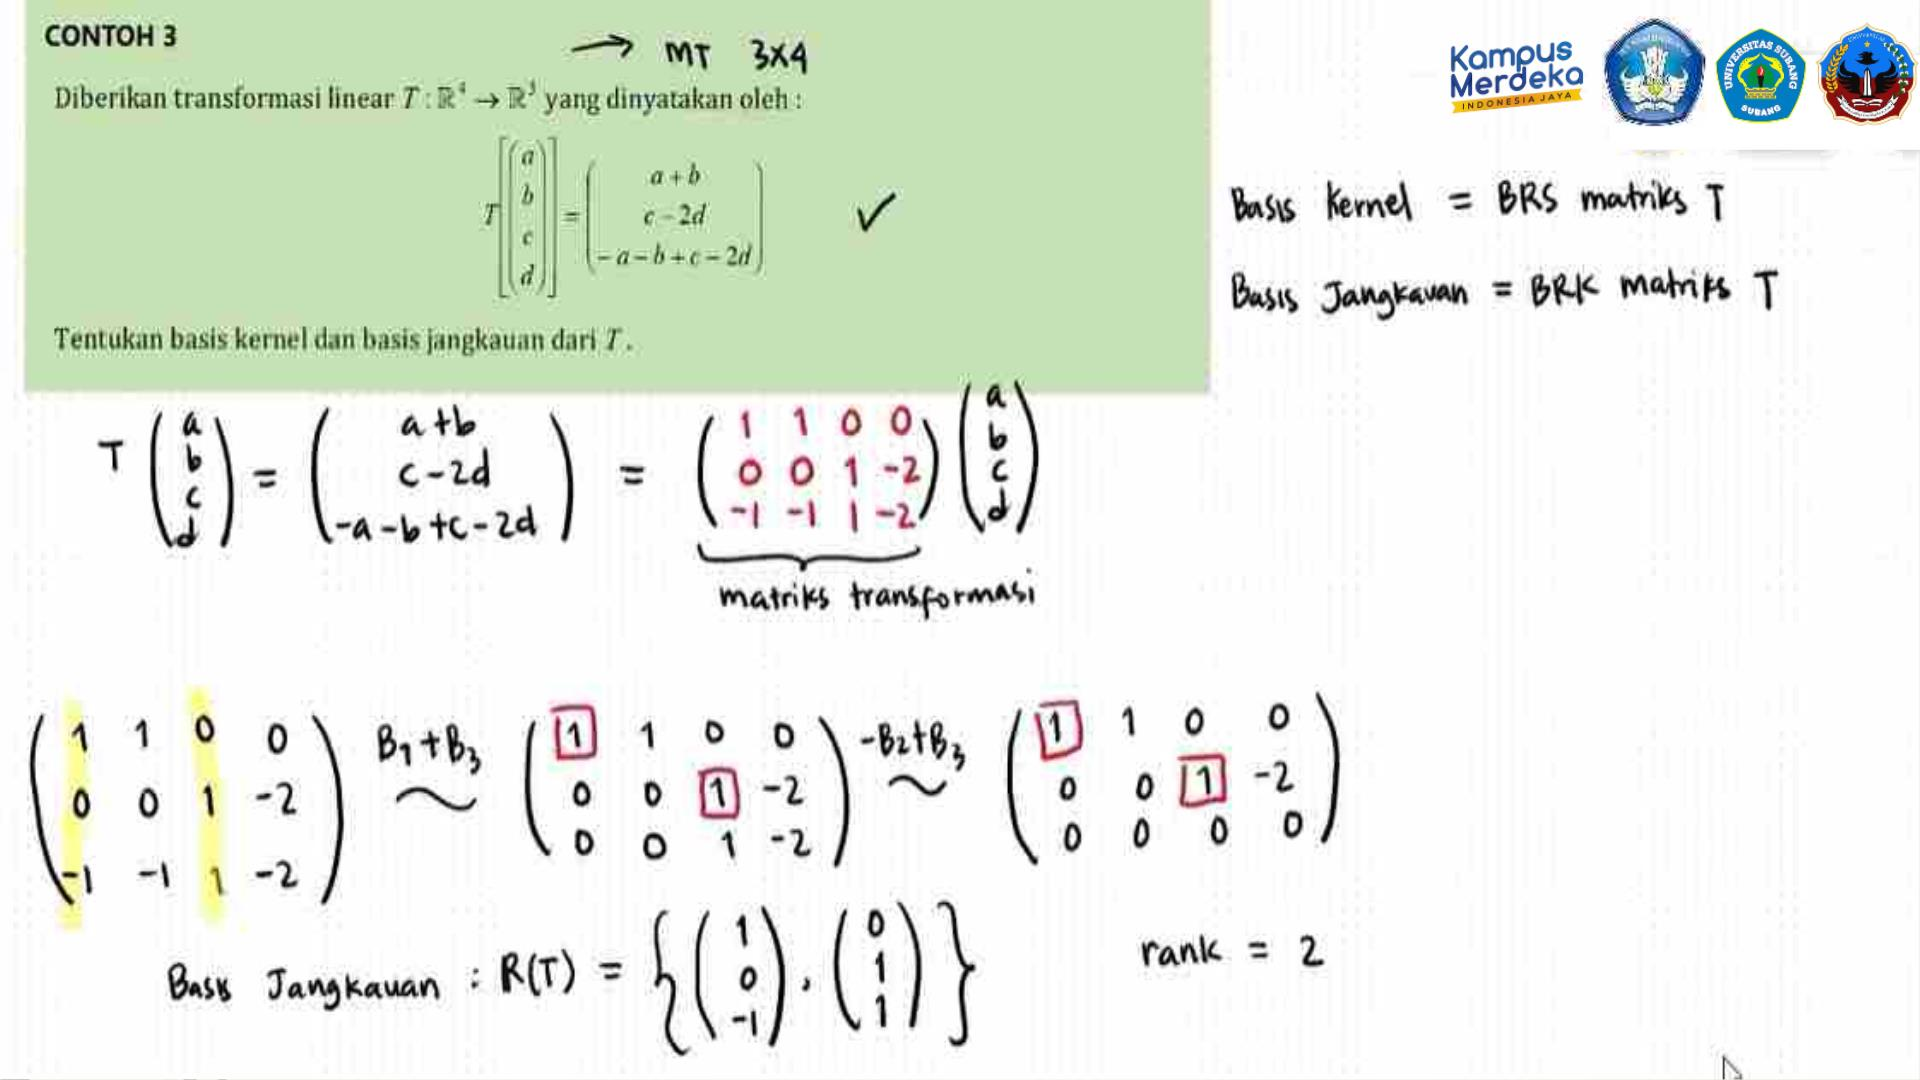 CONTOH 3
→ MT 3x4
Diberikan transformasi linear T : ℝ⁴ → ℝ³ yang dinyatakan oleh :
T[(a b c d)] = (a + b
c - 2d
- a - b + c - 2d) ✓
Tentukan basis kernel dan basis jangkauan dari T.
Kampus
Merdeka
INDONESIA JAYA
UNIVERSITAS SUBANG
SUBANG
Basis Kernel = BRS matriks T
Basis Jangkauan = BRK matriks T
T (a b c d) = (a+b
c-2d
-a-b+c-2d) =
(1 1 0 0
0 0 1 -2
-1 -1 1 -2) (a b c d)
matriks transformasi
(1 1 0 0
0 0 1 -2
-1 -1 1 -2)
B1+B3 ~
(1 1 0 0
0 0 1 -2
0 0 1 -2)
-B2+B3 ~
(1 1 0 0
0 0 1 -2
0 0 0 0)
Basis Jangkauan : R(T) = {(1 0 -1), (0 1 1)}
rank = 2